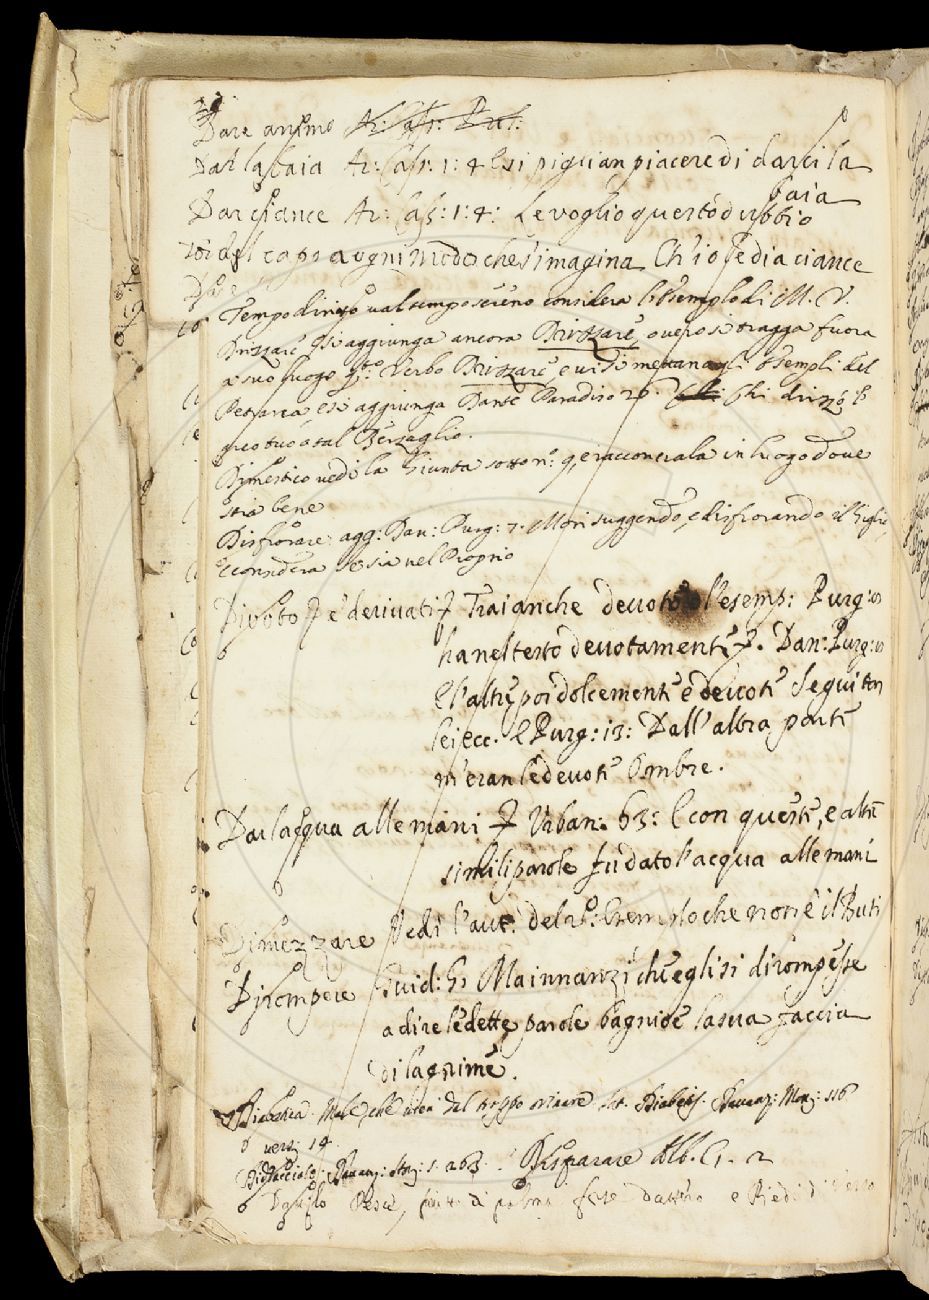 Dare animo Ar: Cass:
Dar la baia Ar: Cass: 1: 4 E si piglian piacere di darci la
baia
Dar ciance Ar: Cass: 1: 4: Levoglio questo dubbio
del capo a ogni modo che s'imagina Ch'io le dia ciance
Tempo diritto val tempo sereno considera l'essemplo di M. V.
Drizzare e si aggiunga ancora Dirizzare, overo si tragga fuora
a suo luogo q.to verbo Dirizzare e vi si mettano gli essempli del
Petrarca e si aggiunga Dante Paradiso 26. Chi drizzò l'
arco tuo a tal Berzaglio.
Dimestico vedi la Giunta sotto n.º 9, e racconciala in luogo dove
stia bene
Disfiorare. agg: Dan: Purg: 7. Mori fuggendo, e disfiorando il Giglio,
e considera se sia nel Proprio
Divoto e derivati Trai anche devoto l'esemp: Purg:
ha nel testo devotamente. Dan: Purg:
E l'altre poi dolcemente e devote Seguitar
lei ecc. e Purg: 13: Dall'altra parte
m'eran le devote Ombre.
Dar l'acqua alle mani Urban: 63: E con queste, e altre
simili parole fu dato l'acqua alle mani
Dimezzare Vedi l'aut: del p.º: Esemplo che non è il Buti
Dirompere Guid: G. Ma innanzi ch'egli si dirompesse
a dire le dette parole bagnioe la sua faccia
di lagrime.
Diabetica. Male, che vien dal troppo orinare Lat. Diabetes. Davanz: Mon: 116
verz: 14.
Davanz: 263. Disparare Alb. G. 2
Pesce, e Piedi